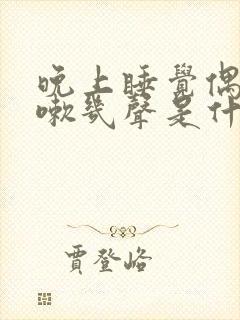 晚上睡覺偶
嗽幾聲是什
賈登峪